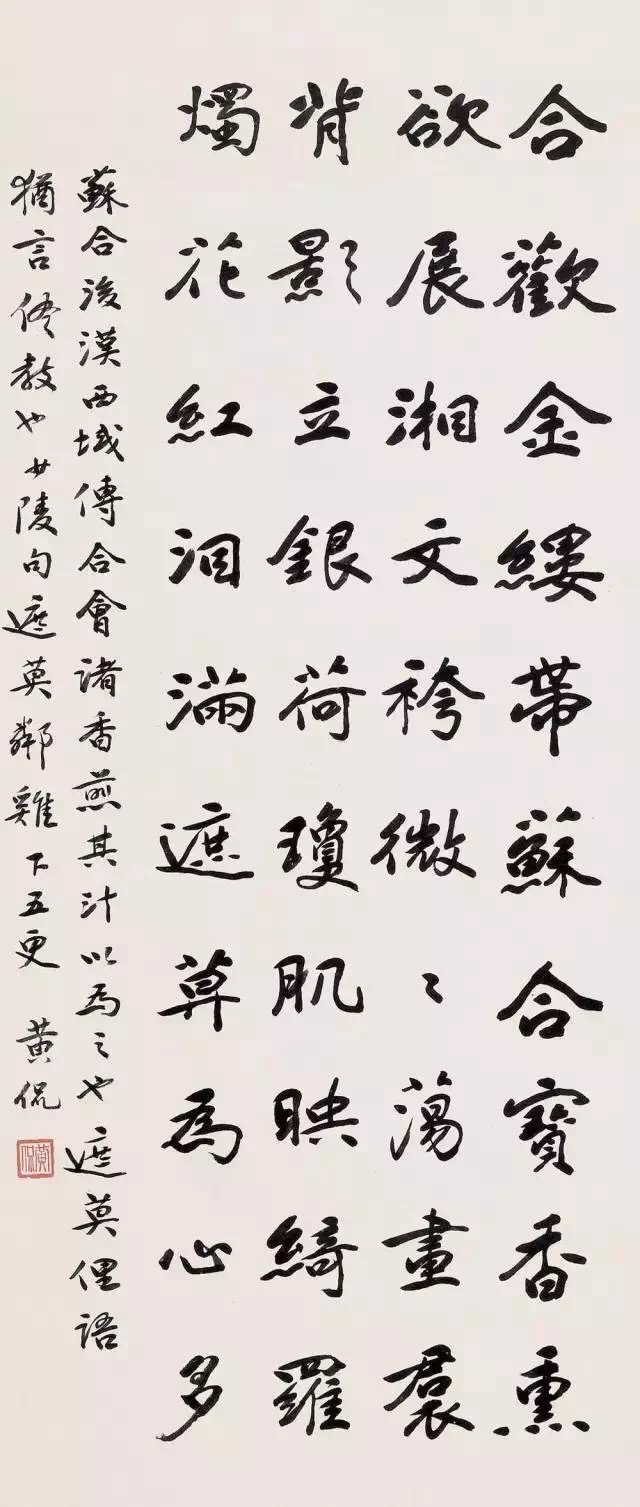 合歡金縷帶蘇合寶香熏
欲展湘文袴微〻蕩畫裠
背影立銀荷瓊肌映綺羅
燭花紅泪滿遮莫為心多
蘇合後漢西域傳合會諸香煎其汁以為之也遮莫俚語
猶言儘教也少陵句遮莫鄰雞下五更 黄侃
黄侃